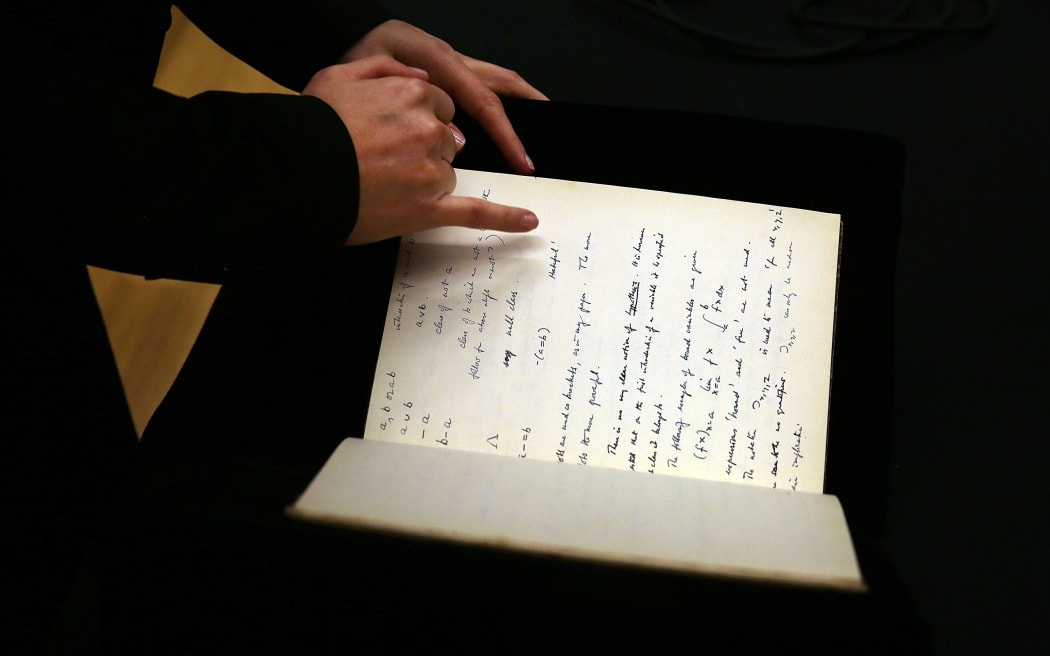 a, b or ab intersection of a and b
a ∪ b a v b.
– a class of not a
b – a class of b which are not a
follow from above
Λ null class.
–(a=b) Hateful!
are used as brackets, as in my paper. The more
the more powerful.
There is no very clear notion of hypothesis. It is
that on the first introduction of a variable it is specified
class it belongs to.
The following examples of bound variables are given
(f x)x=a lim x=a f x ∫ab f x dx
expressions 'bound' and 'free' are not used.
The notation ⊃x,y,z is used to mean 'for all x,y,z'
to be no quantifiers. ⊃x,y,z merely be
implication.